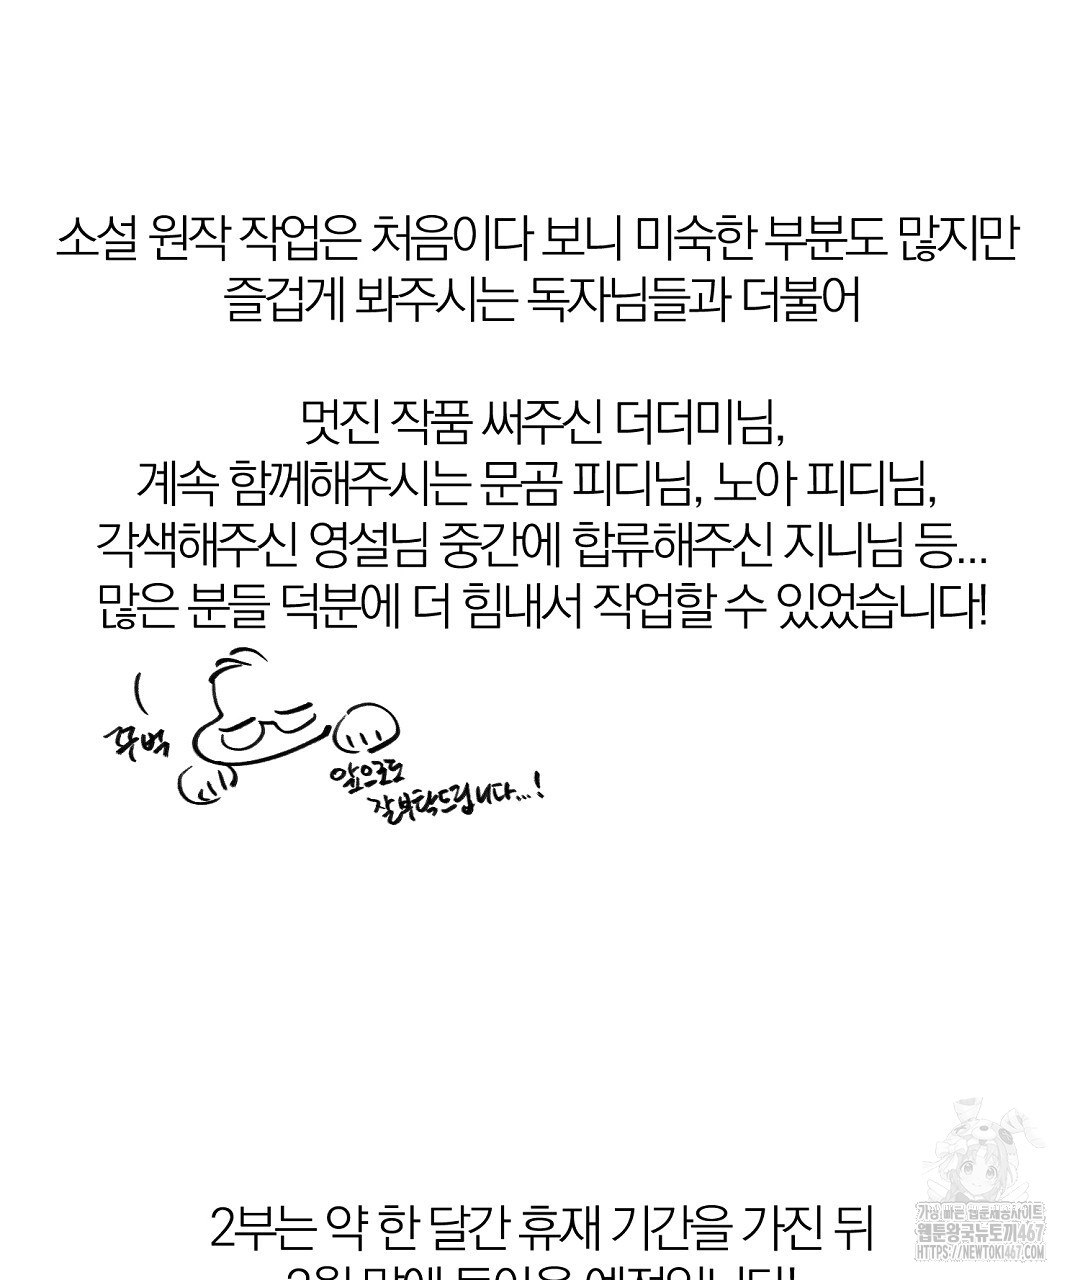 소설 원작 작업은 처음이다 보니 미숙한 부분도 많지만
즐겁게 봐주시는 독자님들과 더불어
멋진 작품 써주신 더더미님,
계속 함께해주시는 문곰 피디님, 노아 피디님,
각색해주신 영설님 중간에 합류해주신 지니님 등...
많은 분들 덕분에 더 힘내서 작업할 수 있었습니다!
꾸벅
앞으로도
잘부탁드립니다...!
2부는 약 한 달간 휴재 기간을 가진 뒤
가장 빠른 웹툰제공사이트
웹툰왕국뉴토끼467
HTTPS://NEWTOKI467.COM